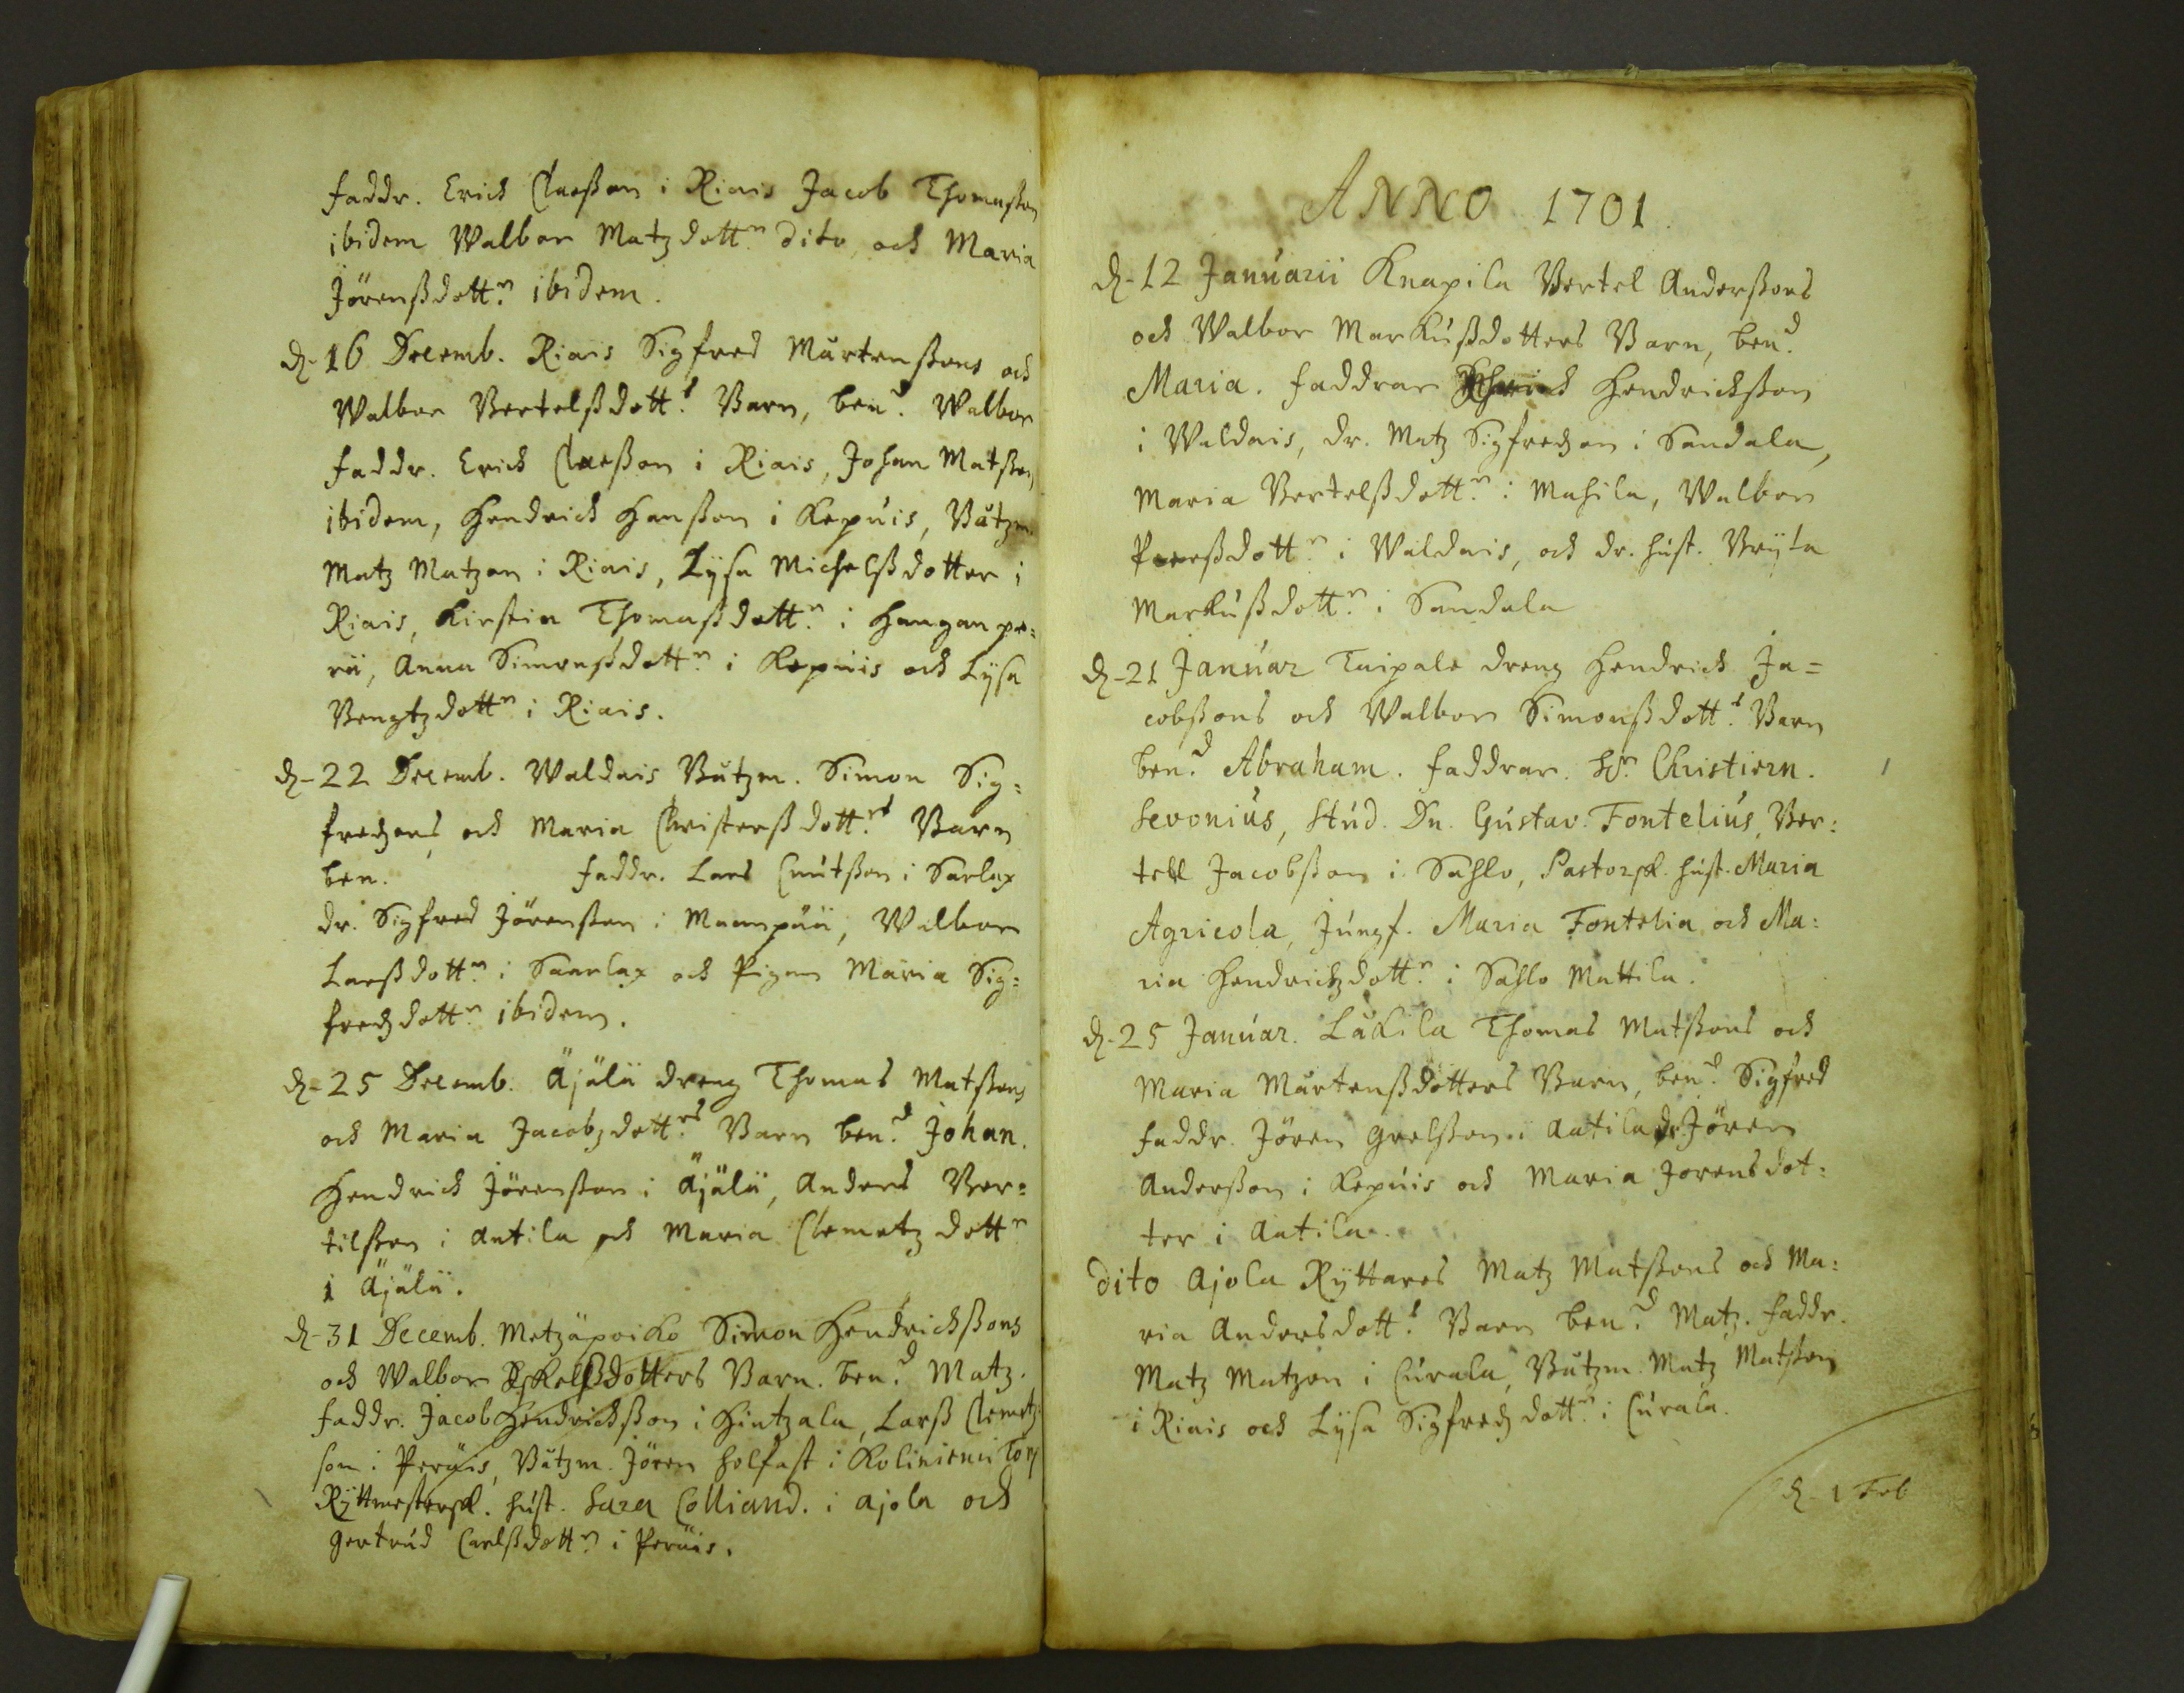 faddr. Erick Claeßon i Riais Jacob Thomaßon
ibidem Walbor Matzdottr dito, och Maria
Jörenßdottr ibidem.
d. 16 Decemb. Riais Sigfred Mårtenßons och
Walbor Bertelßdotts Barn, bend. Walbor
faddr. Erick Claeßon i Riais, Johan Matßon,
ibidem, Hendrick Hanßon i Kepuis, Båtzm.
Matz Matzon i Riais, Lÿsa Michelßdotter i
Riais, Kirstin Thomaßdottr i Hanganpe=
rä, Anna Simonßdottr i Kepuis och Lÿsa
Bengtzdottr i Riais.
d. 22 Decemb. Waldais Båtzm. Simon Sig=
fredzons och Maria Christerßdottrs Barn
ben. faddr. Lars Cnutßon i Sarlax
dr. Sigfred Jörenßon i Maanpää, Walbor
Larßdottr i Saarlax och Pigan Maria Sig=
fredzdottr ibidem.
d. 25 Decemb. Äjälä dreng Thomas Matßons
och Maria Jacobzdottrs Barn bend Johan.
Hendrick Jörenßon i Äjälä, Anders Ber=
tilßon i Antila och Maria Clemetzdottr
i Äjälä.
d. 31 Decemb. Metzäpoiko Simon Hendrickßons
och Walbor Eskelßdotters Barn. bend Matz.
faddr. Jacob Hendrickßon i Hintzala, Larß Clemetz
son i Peräis, Båtzm. Jören Holfast i Koliniemi Torp
Rÿttmestersk. hust. Sara Colliand. i Ajola och
Gertrud Carlßdottr i Peräis.
ANNO 1701.
d. 12 Januarii Knapila Bertel Anderßons
och Walbor Markußdotters Barn, bend
Maria. faddrar Hendrickßon
i Waldais, dr. Matz Sigfredzon i Sandala,
Maria Bertelßdottr i Mahila, Walbor
Pereßdottr i Waldais, och dr. hust. Brÿta
Markußdottr i Sandala
d. 21 Januar Taipale dreng Hendrick Ja=
cobßons och Walbor Simonßdotts Barn
bend Abraham. faddrar. Hr Christiern.
Sevonius, Stud. Dn. Gustav. Fontelius, Ber=
tell Jacobßon i Sahlo, Pastorsk. hust. Maria
Agricola, Jungf. Maria Fontelia och Ma=
ria Hendrichzdottr i Sahlo Mattila.
d. 25 Januar. Låkila Thomas Matßons och
Maria Mårtenßdotters Barn, bend Sigfred
faddr. Jören Grelßon i Antila dr Jören
Anderßon i Kepuis och Maria Jorensdot=
ter i Antila.
dito Ajola Rÿttares Matz Matßons och Ma=
ria Andersdotts Barn bend Matz. faddr.
Matz Matzon i Curala, Båtzm. Matz Matßon
i Riais och Lÿsa Sigfredzdottr i Curala.
d. 1 Feb